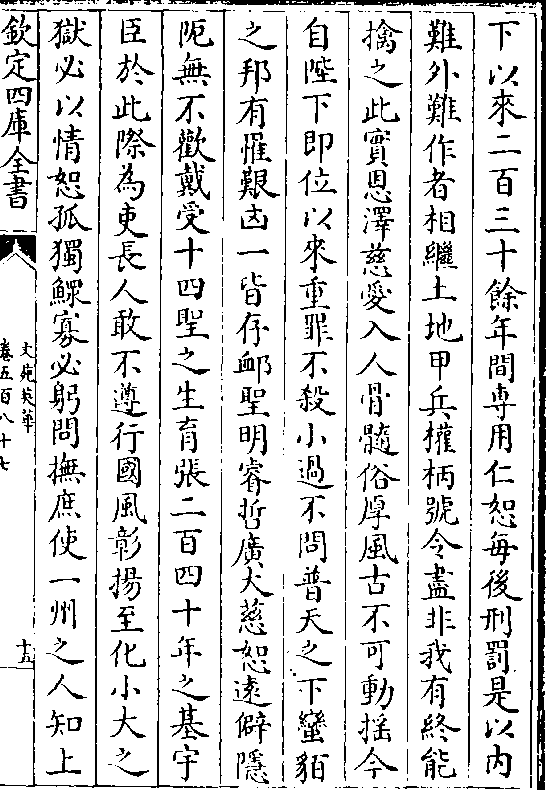 下以來二百三十餘年間專用仁恕每後刑罰是以内
難外難作者相繼土地甲兵權柄號令盡非我有終能
擒之此實恩澤慈愛入人骨髓俗厚風古不可動揺今
自陛下即位以來重罪不殺小過不問普天之下蠻貊
之邦有罹艱凶一皆存䘏聖明睿哲廣大慈恕遠僻隱
阨無不歡戴受十四聖之生育張二百四十年之基宇
臣於此際為吏長人敢不遵行國風彰揚至化小大之
獄必以情恕孤獨鰥寡必躬問撫庶使一州之人知上
欽定四庫全書
文苑英華
卷五百八十七
十五